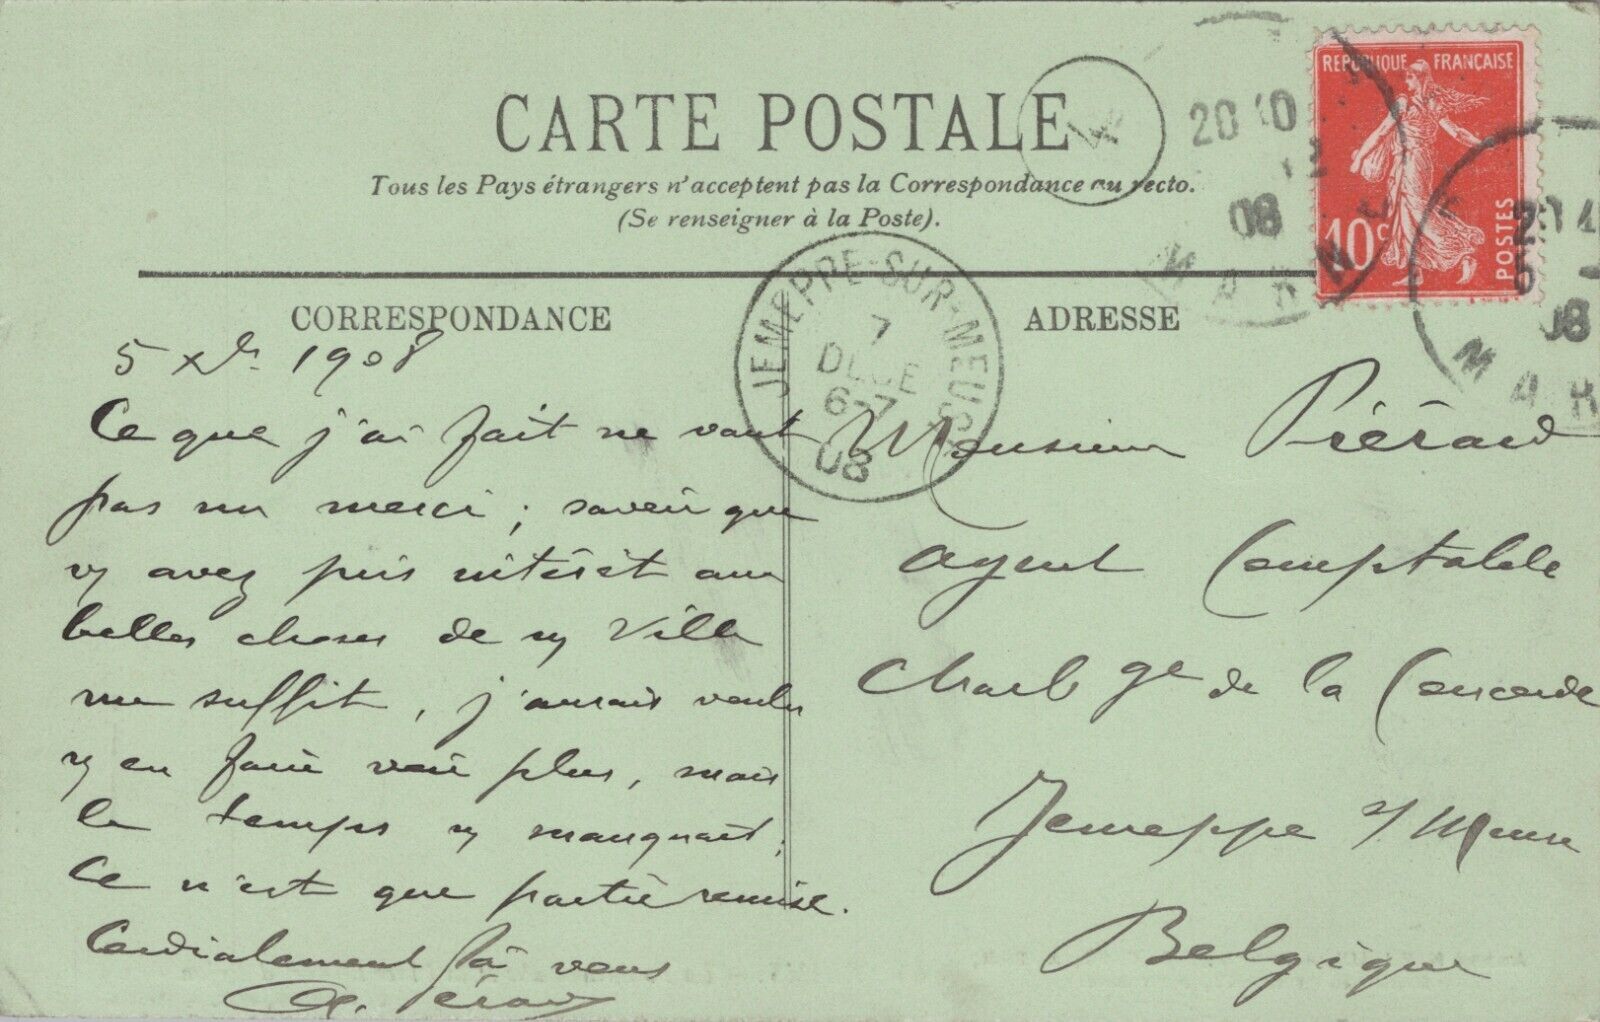 CARTE POSTALE
Tous les Pays étrangers n'acceptent pas la Correspondance au recto.
(Se renseigner à la Poste).
REPUBLIQUE FRANÇAISE
10c
POSTES
20 10
12
08
MARNE
20 1
5 -
08
MAR
JEMEPPE-SUR-MEUSE
7
DECE
6-7
08
CORRESPONDANCE
5 Xbr 1908
Ce que j'ai fait ne vaut
pas un merci ; savoir que
vs avez pris intérêt aux
belles choses de ma Ville
me suffit, j'aurais voulu
vs en faire voir plus, mais
le temps vs manquait ;
Ce n'est que partie remise.
Cordialement à vous
ADRESSE
Monsieur Piérard
agent Comptable
Charb ge de la Concorde
Jemeppe s/ Meuse
Belgique